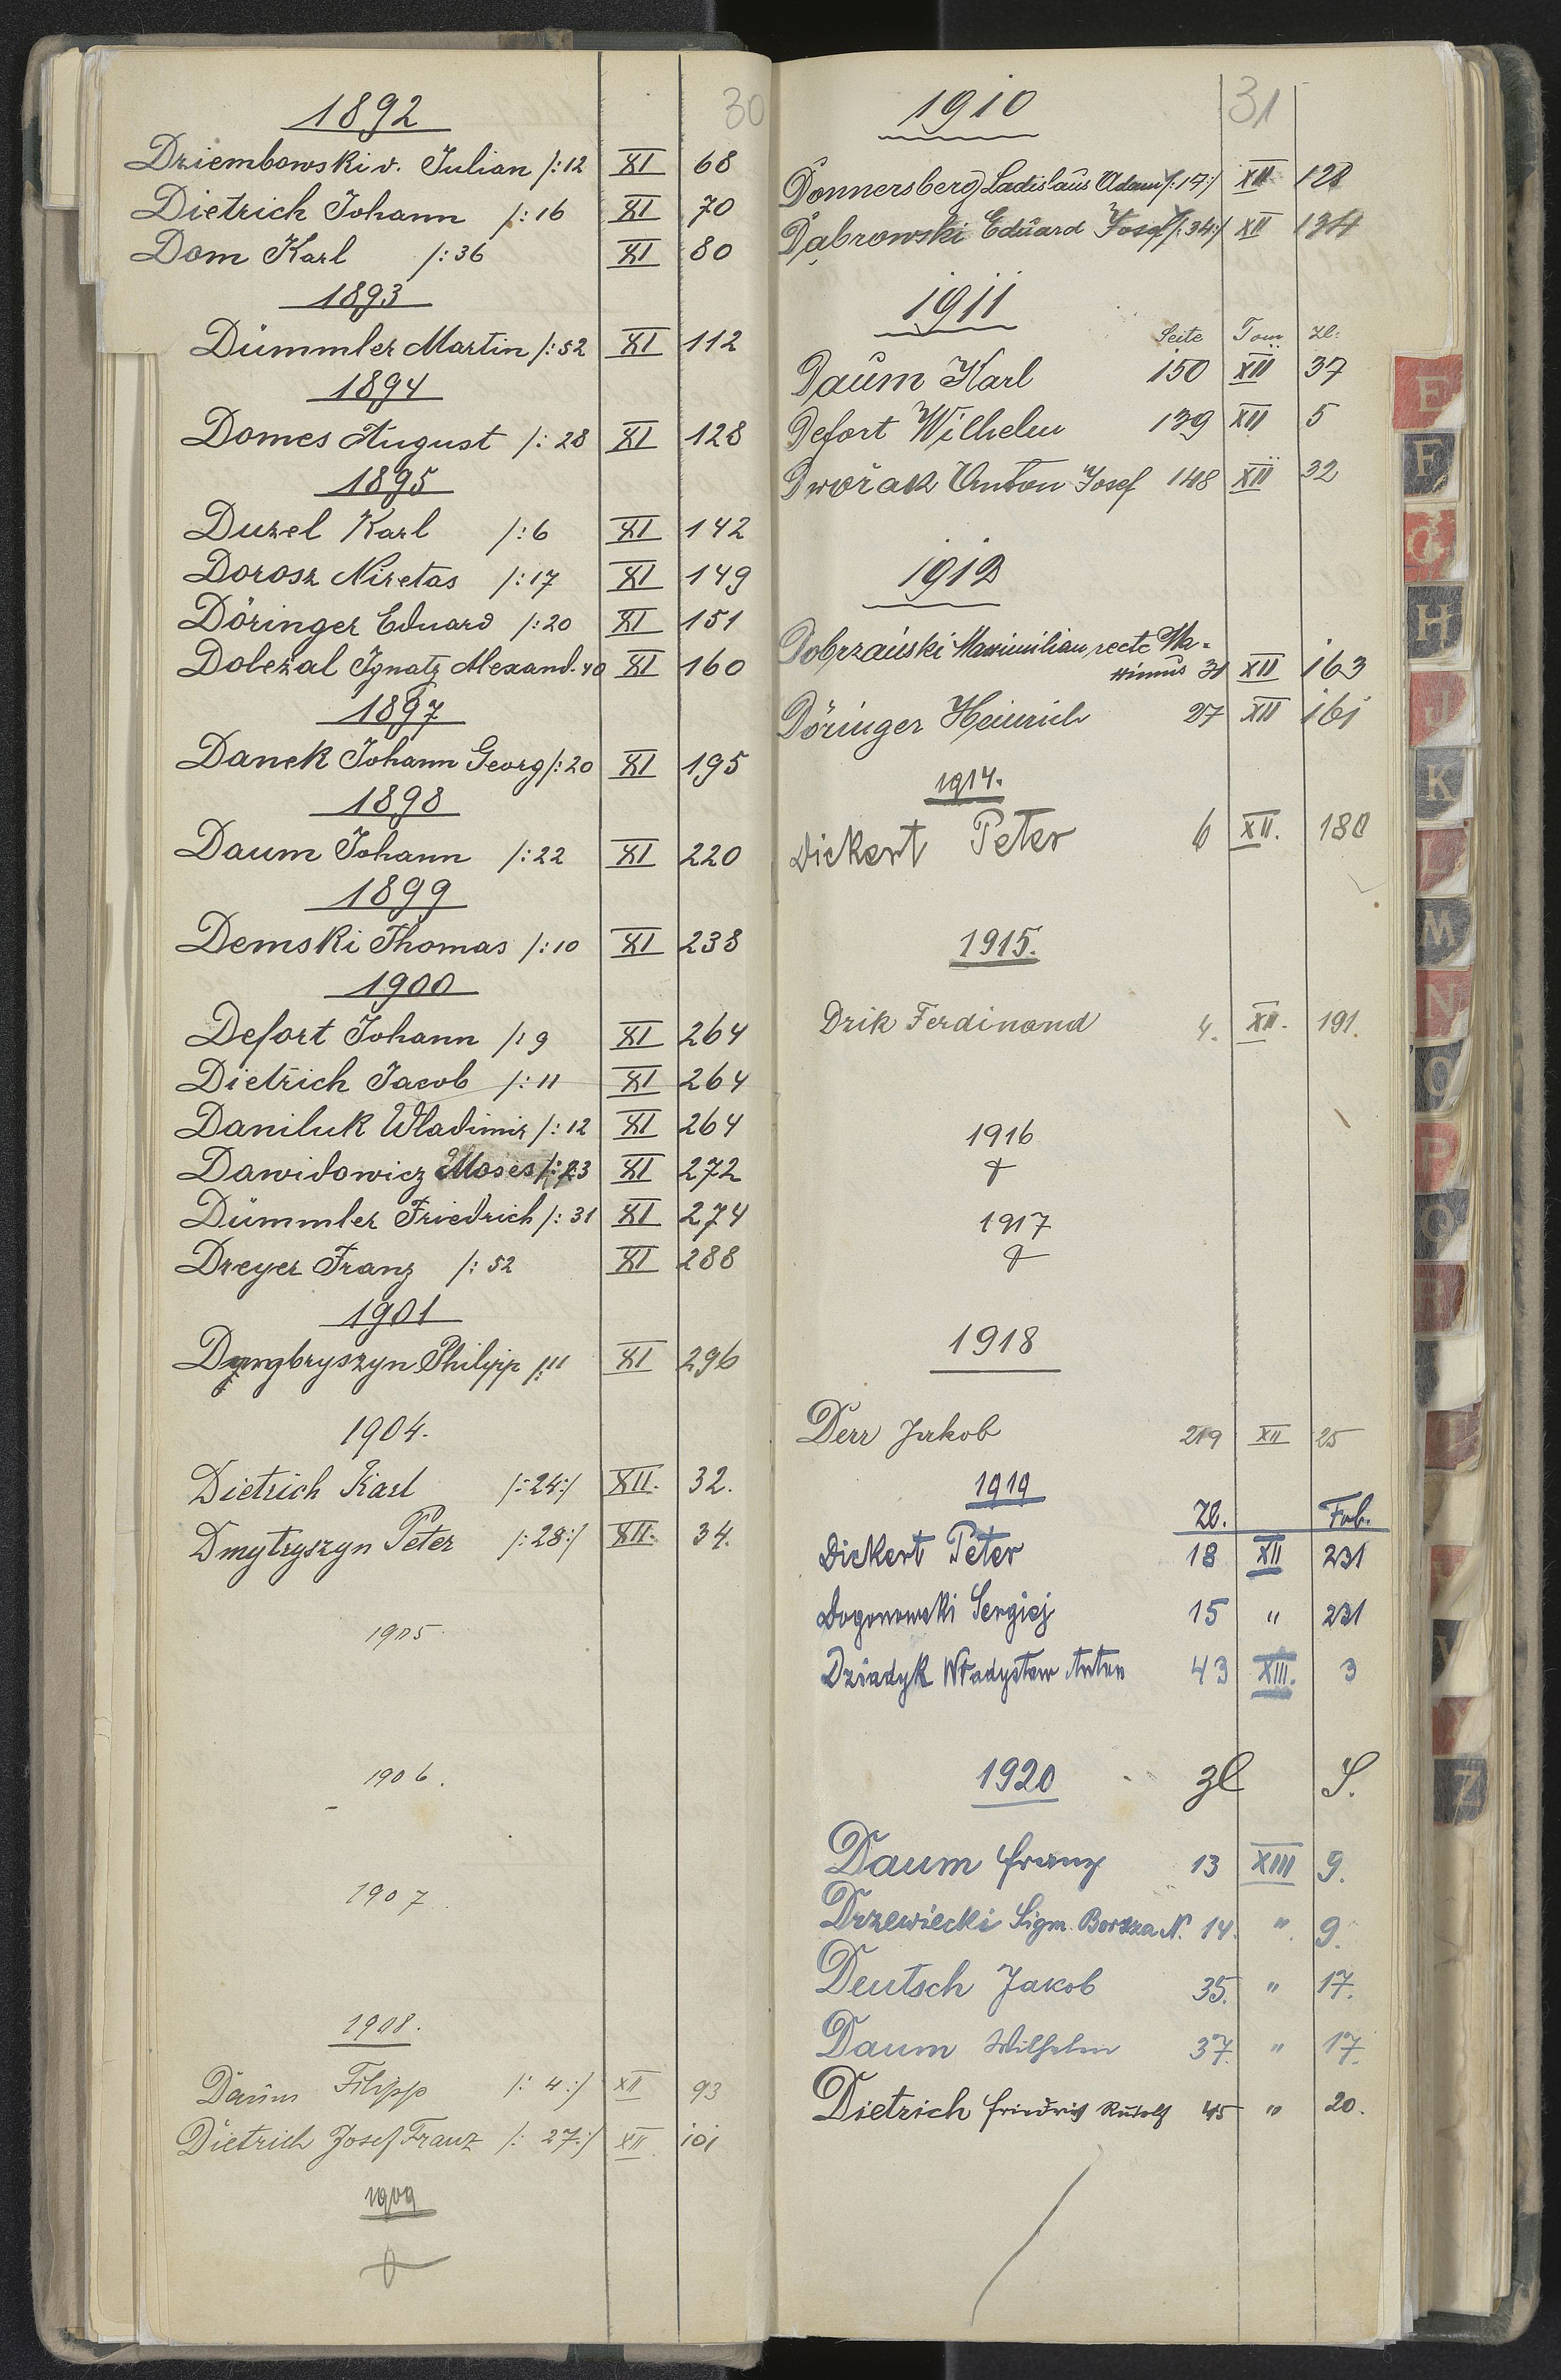 30
1892
Dziembowski v. Julian /:12 XI 68
Dietrich Johann /:16 XI 70
Dom Karl /:36 XI 80
1893
Dümmler Martin /:52 XI 112
1894
Domes August /:28 XI 128
1895
Duzel Karl /:6 XI 142
Dorosz Niretas /:17 XI 149
Döringer Eduard /:20 XI 151
Dolezal Ignatz Alexand. 40 XI 160
1897
Danek Johann Georg /:20 XI 195
1898
Daum Johann /:22 XI 220
1899
Demski Thomas /:10 XI 238
1900
Defort Johann /:9 XI 264
Dietrich Jacob /:11 XI 264
Daniluk Wladimir /:12 XI 264
Dawidowicz Moses /:23 XI 272
Dümmler Friedrich /:31 XI 274
Dreyer Franz /:52 XI 288
1901
Philipp /:11 XI 296
1904.
Dietrich Karl /:24:/ XII. 32.
Dmytryszyn Peter /:28:/ XII. 34.
1905
1906.
1907
1908.
Daŭm Filipp /: 4:/ XII 93
Dietrich Josef Franz /: 27:/ XII 101
1909
31
1910
Donnersberg Ladislaŭs Adam /:17:/ XII 128
Dąbrowski Edŭard Josef /:34:/ XII 134
1911
Seite Tom Zl:
Daŭm Karl 150 XII 37
Defort Wilhelm 139 XII 5
Dwořak Anton Josef 148 XII 32
1912
Dobrzański Maximilian recte Ma-
ximŭs 31 XII 163
Döringer Heinrich 27 XII 161
1914.
Dickert Peter 6 XII. 180
1915.
Dzik Ferdinand 4. XII. 191.
1916
1917
1918
Derr Jakob 219 XII 25
1919
Zl. Fol.
Dickert Peter 18 XII 231
Dogonowski Sergiej 15 " 231
Dziadyk Władysław Anton 43 XIII. 3
1920 Zl S.
Daum Franz 13 XIII 9.
Drzewiecki Sigm. Borzza N. 14. " 9.
Deutsch Jakob 35. " 17.
Daum Wilhelm 37. " 17.
Dietrich Friedrich Rudolf 45 " 20.
E
F
G
H
J
K
L
M
N
O
P
Q
R
Z